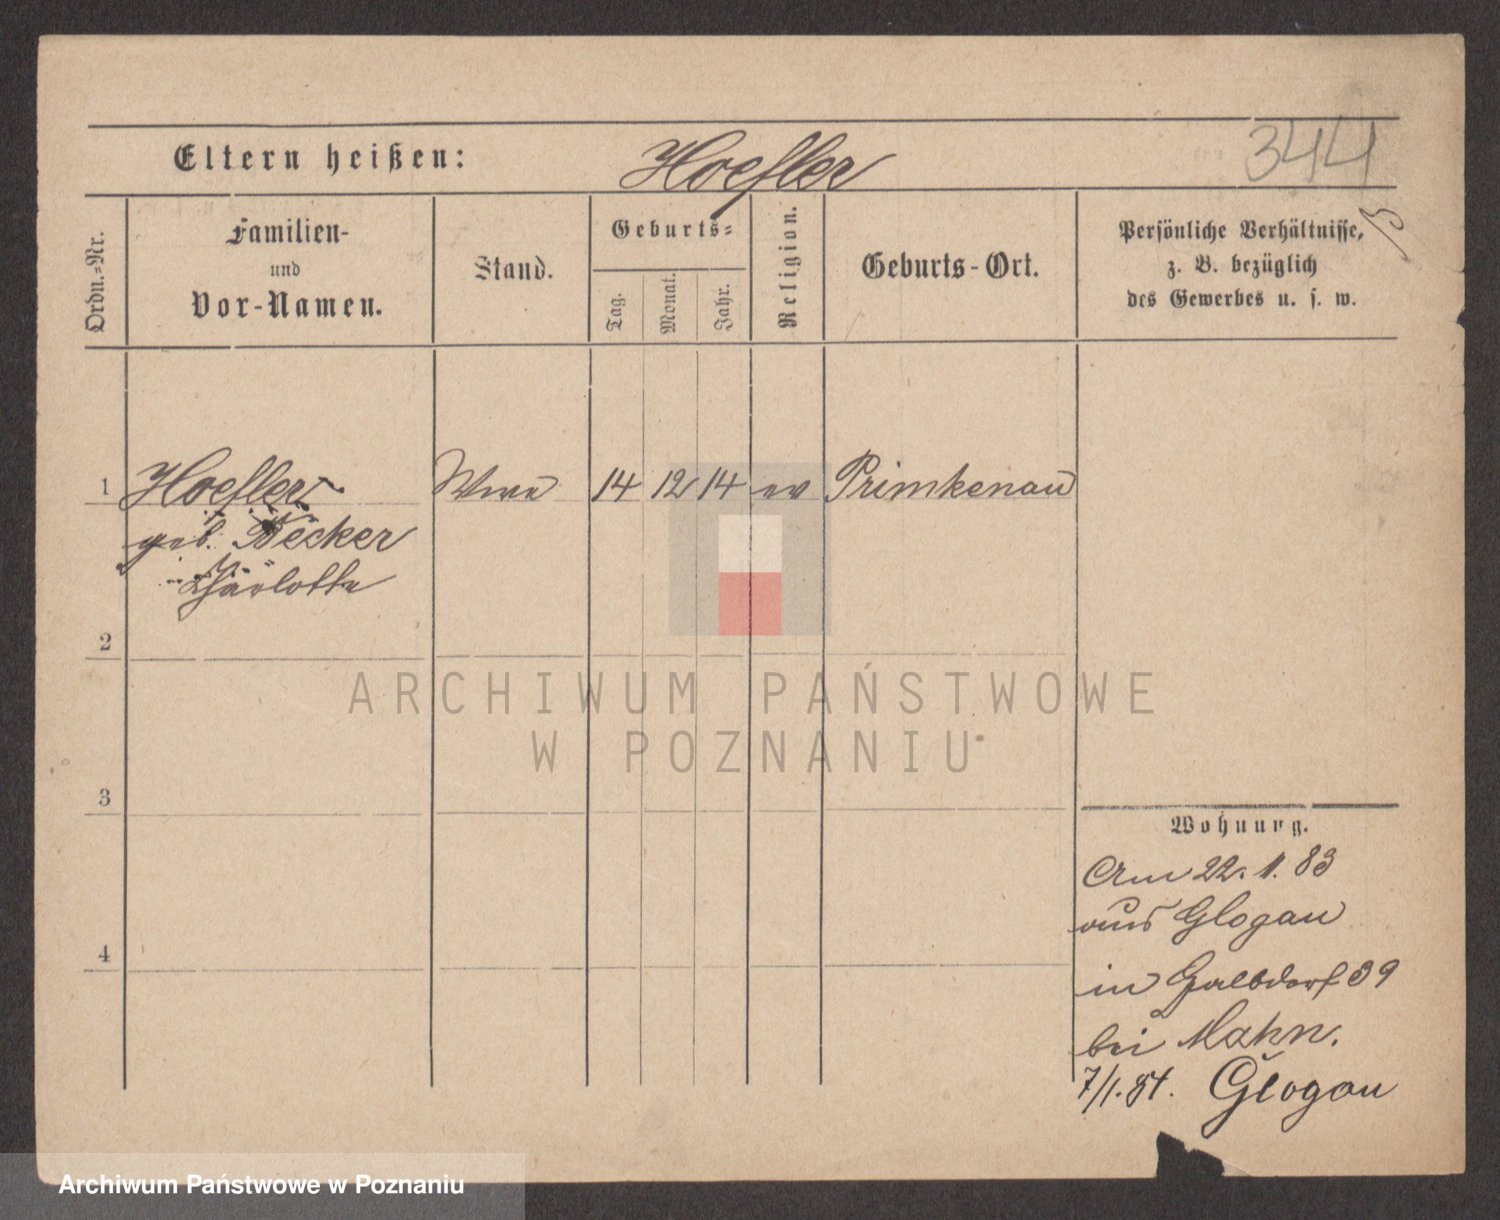 344
Eltern heißen: Hoefler
Ordn.=Nr.
Familien-
und
Vor-Namen.
Stand.
Geburts=
Tag.
Monat.
Jahr.
Religion.
Geburts-Ort.
Persönliche Verhältnisse,
z. B. bezüglich
des Gewerbes u. s. w.
1 Hoefler Wwe 14 12 14 ev Primkenau
geb. Becker
Charlotte
2
3
4
Wohnung.
Am 22. 11. 83
aus Glogau
in 39
bei Mahn.
7/1. 84. Glogau
ARCHIWUM PAŃSTWOWE
W POZNANIU
Archiwum Państwowe w Poznaniu